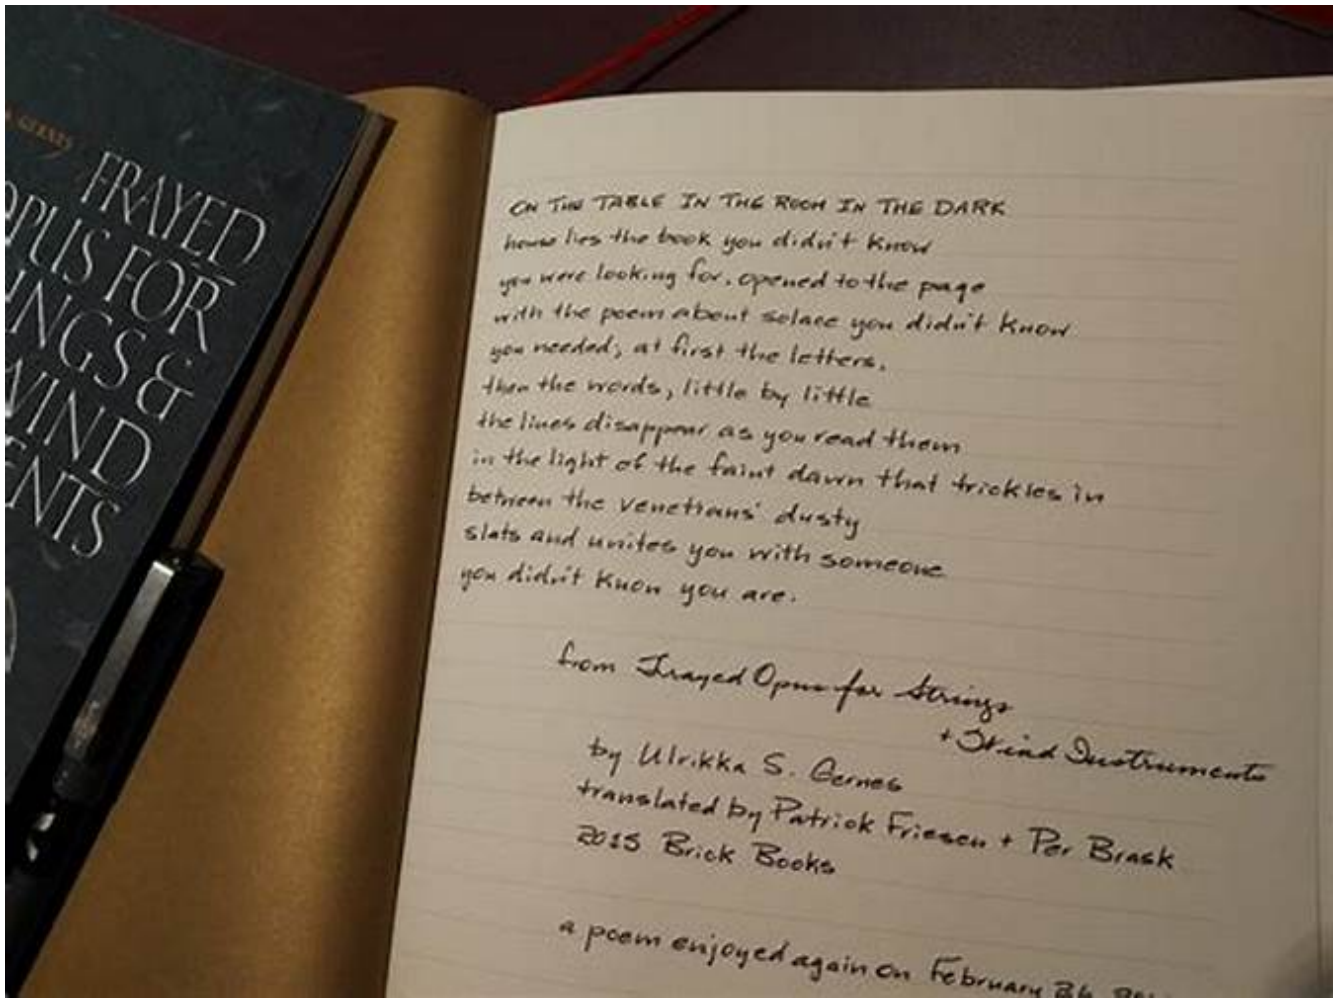 GERNES
FRAYED
OPUS FOR
INGS &
WIND
ENTS
ON THE TABLE IN THE ROOM IN THE DARK
house lies the book you didn't know
you were looking for, opened to the page
with the poem about solace you didn't know
you needed; at first the letters,
then the words, little by little
the lines disappear as you read them
in the light of the faint dawn that trickles in
between the venetians' dusty
slats and unites you with someone
you didn't know you are.
from Frayed Opus for Strings
+ Wind Instruments
by Ulrikka S. Gernes
translated by Patrick Friesen + Per Brask
2015 Brick Books
a poem enjoyed again on February 26